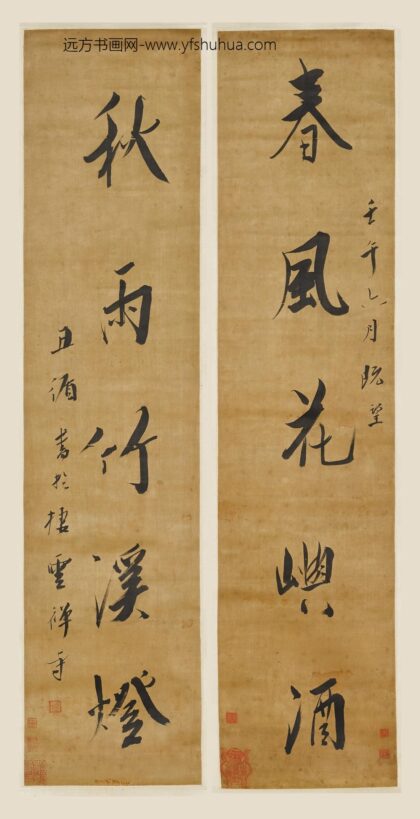 远方书画网-www.yfshuhua.com
春風花嶼酒
壬午六月既望
秋雨竹溪燈
丑循書於棲雲禪寺